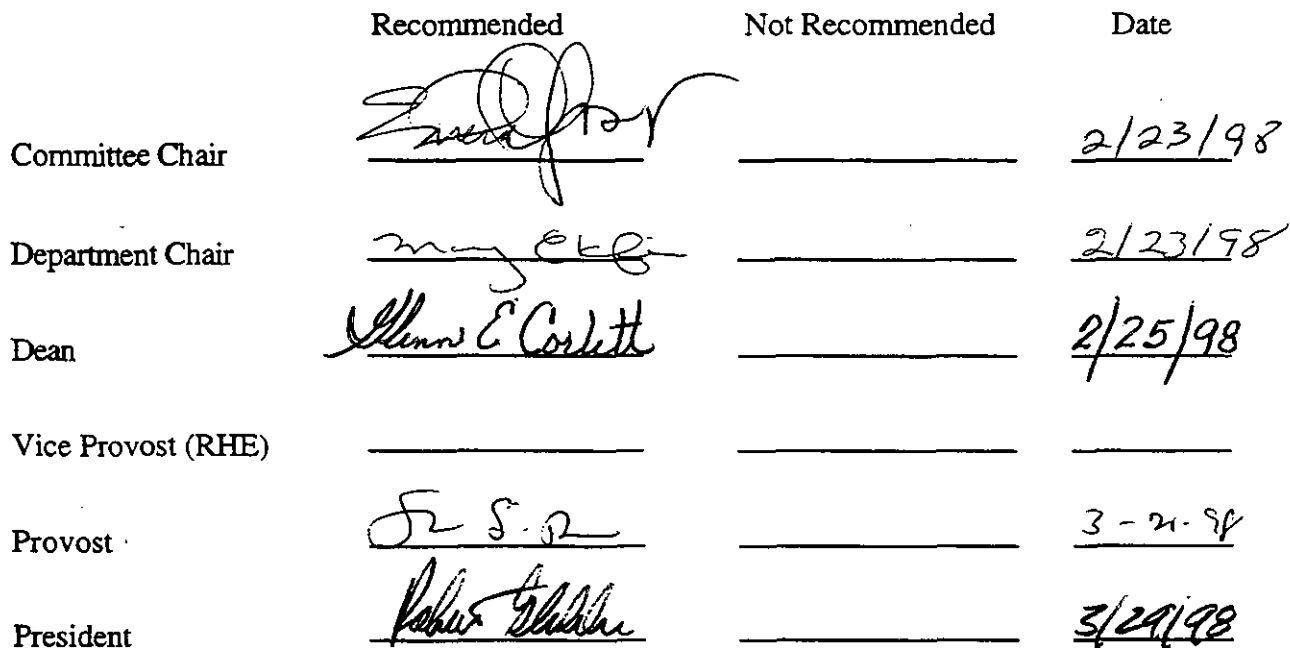 Recommended Not Recommended Date
Committee Chair 2/23/98
Department Chair 2/23/98
Dean Glenn E Corlett 2/25/98
Vice Provost (RHE)
Provost
President 3/29/98